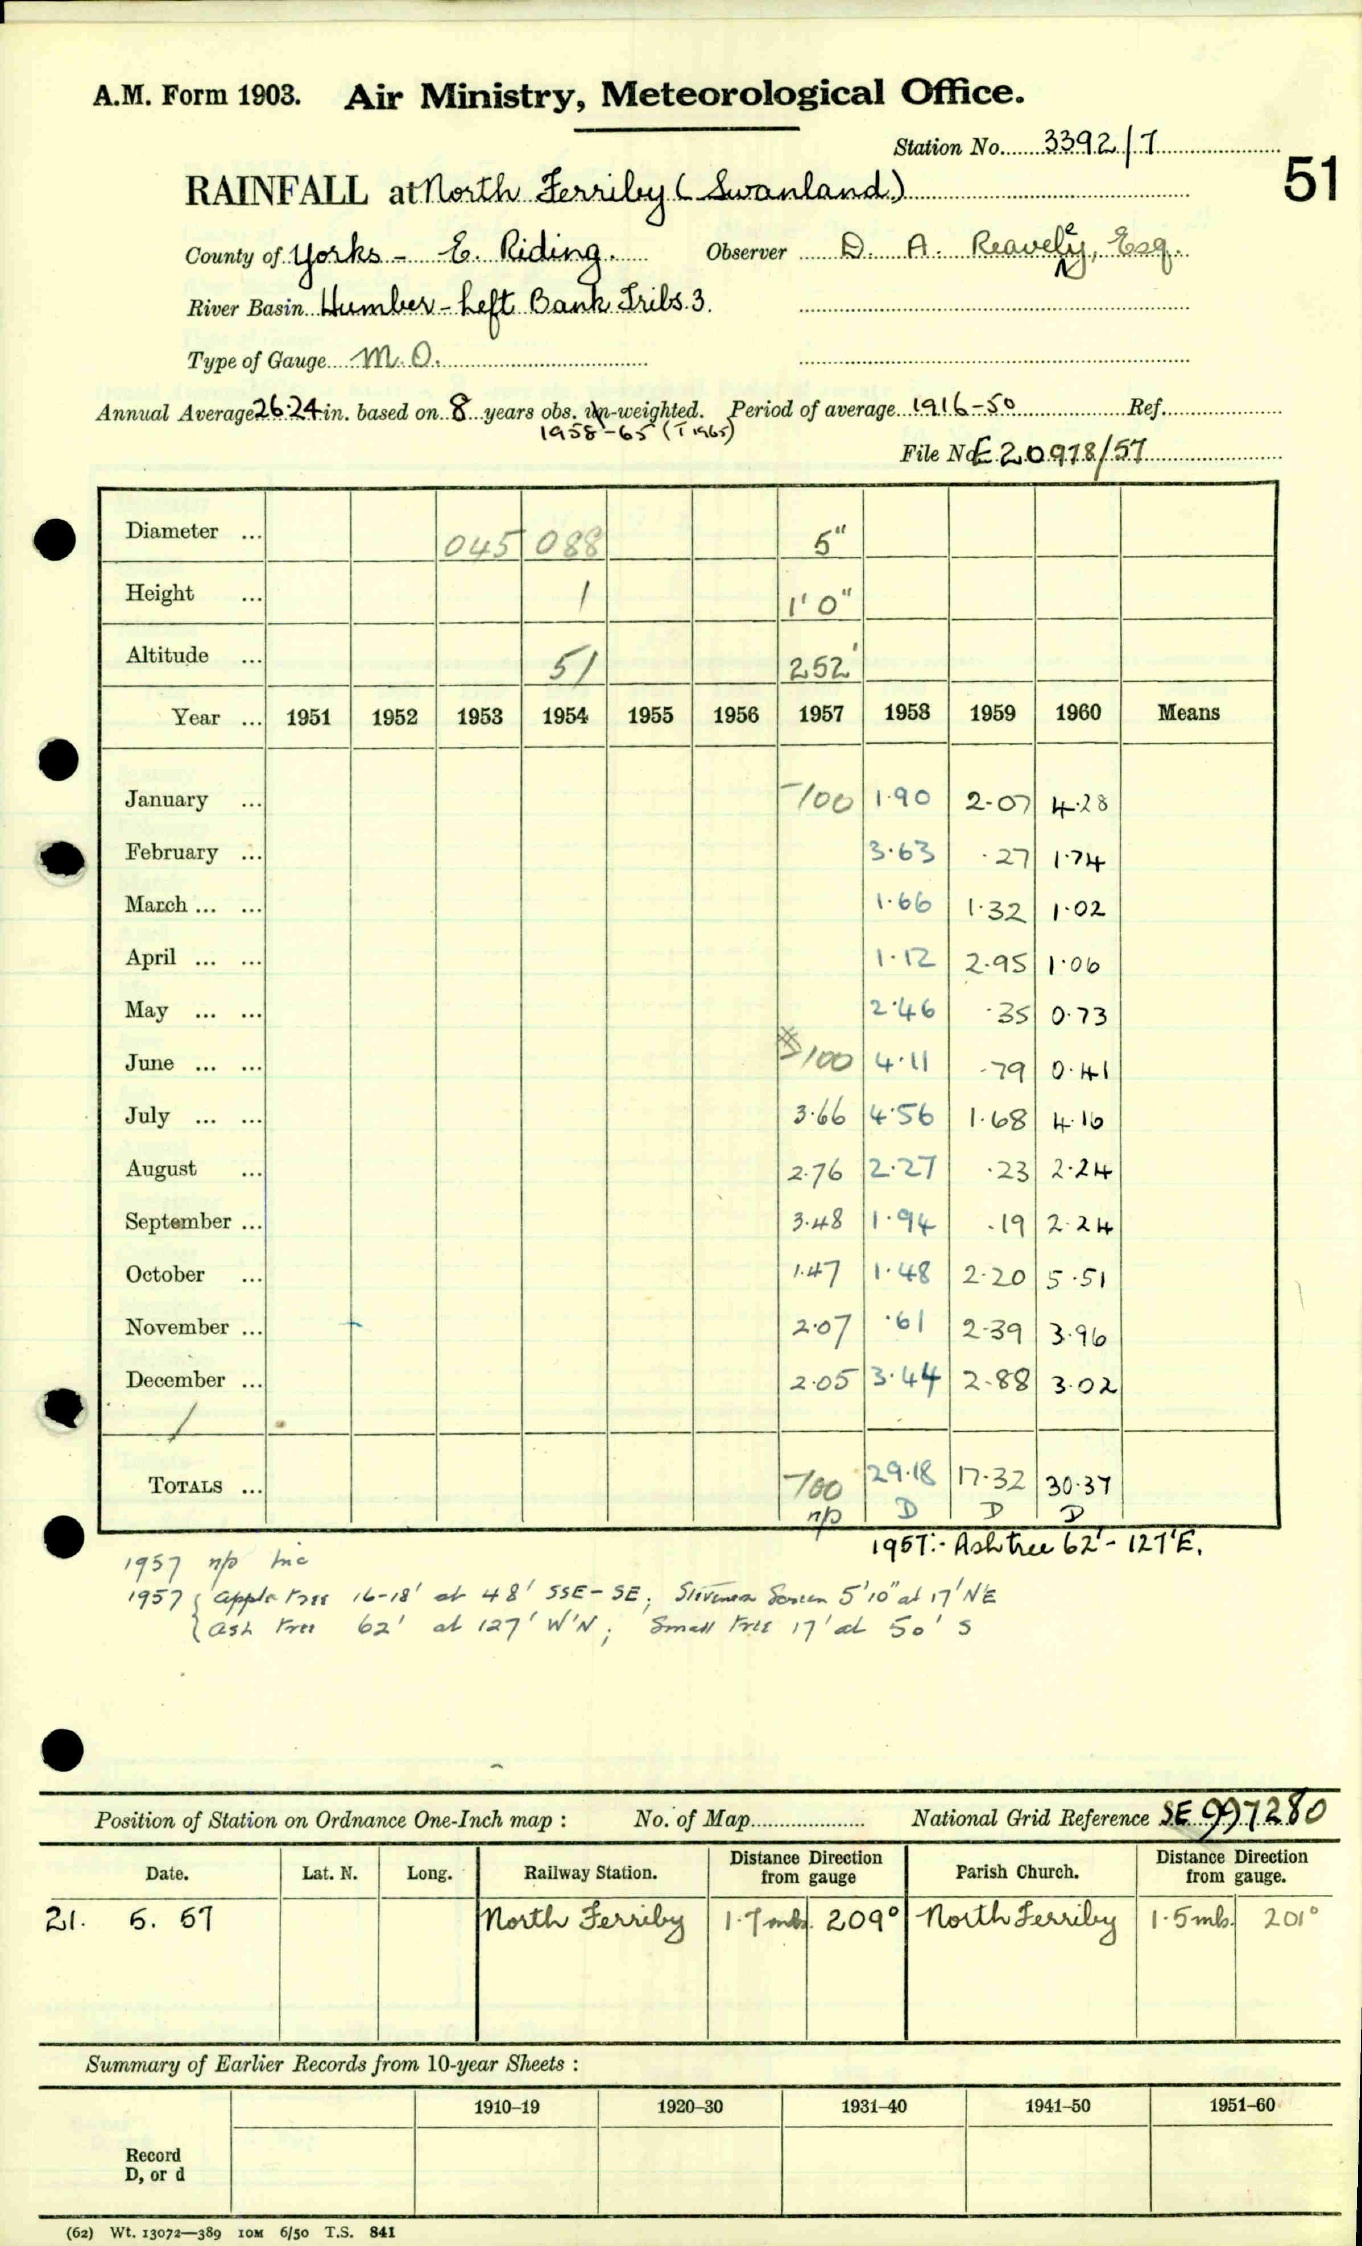 A.M. Form 1903. Air Ministry, Meteorological Office.
Station No. 3392/7
51
RAINFALL at North Ferriby (Swanland)
County of Yorks - E. Riding. Observer D. A. Reavely, Esq.
River Basin Humber - Left Bank Tribs. 3.
Type of Gauge M.O.
Annual Average 26.24 in. based on 8 years obs. un-weighted. Period of average 1916-50 Ref.
1958-65 (T 1965)
File No. E20978/57
Diameter ... 045 088 5"
Height ... 1 1' 0"
Altitude ... 51 252'
Year ... 1951 1952 1953 1954 1955 1956 1957 1958 1959 1960 Means
January ... -100 1.90 2.07 4.28
February ... 3.63 .27 1.74
March ... ... 1.66 1.32 1.02
April ... ... 1.12 2.95 1.06
May ... ... 2.46 .35 0.73
June ... ... 100 4.11 .79 0.41
July ... ... 3.66 4.56 1.68 4.16
August ... 2.76 2.27 .23 2.24
September ... 3.48 1.94 .19 2.24
October ... 1.47 1.48 2.20 5.51
November ... 2.07 .61 2.39 3.96
December ... 2.05 3.44 2.88 3.02
TOTALS ... -100 29.18 17.32 30.37
n/p D D D
1957:- Ash tree 62' - 127' E.
1957 n/p Inc
1957 { Apple tree 16-18' at 48' SSE-SE; Stevenson Screen 5'10" at 17' N'E
{ Ash tree 62' at 127' W'N; Small tree 17' at 50' S
Position of Station on Ordnance One-Inch map : No. of Map National Grid Reference SE 997280
Date. Lat. N. Long. Railway Station. Distance Direction from gauge Parish Church. Distance Direction from gauge.
21. 6. 57 North Ferriby 1.7 mls. 209° North Ferriby 1.5 mls. 201°
Summary of Earlier Records from 10-year Sheets :
1910-19 1920-30 1931-40 1941-50 1951-60
Record
D, or d
(62) Wt. 13072—389 10M 6/50 T.S. 841